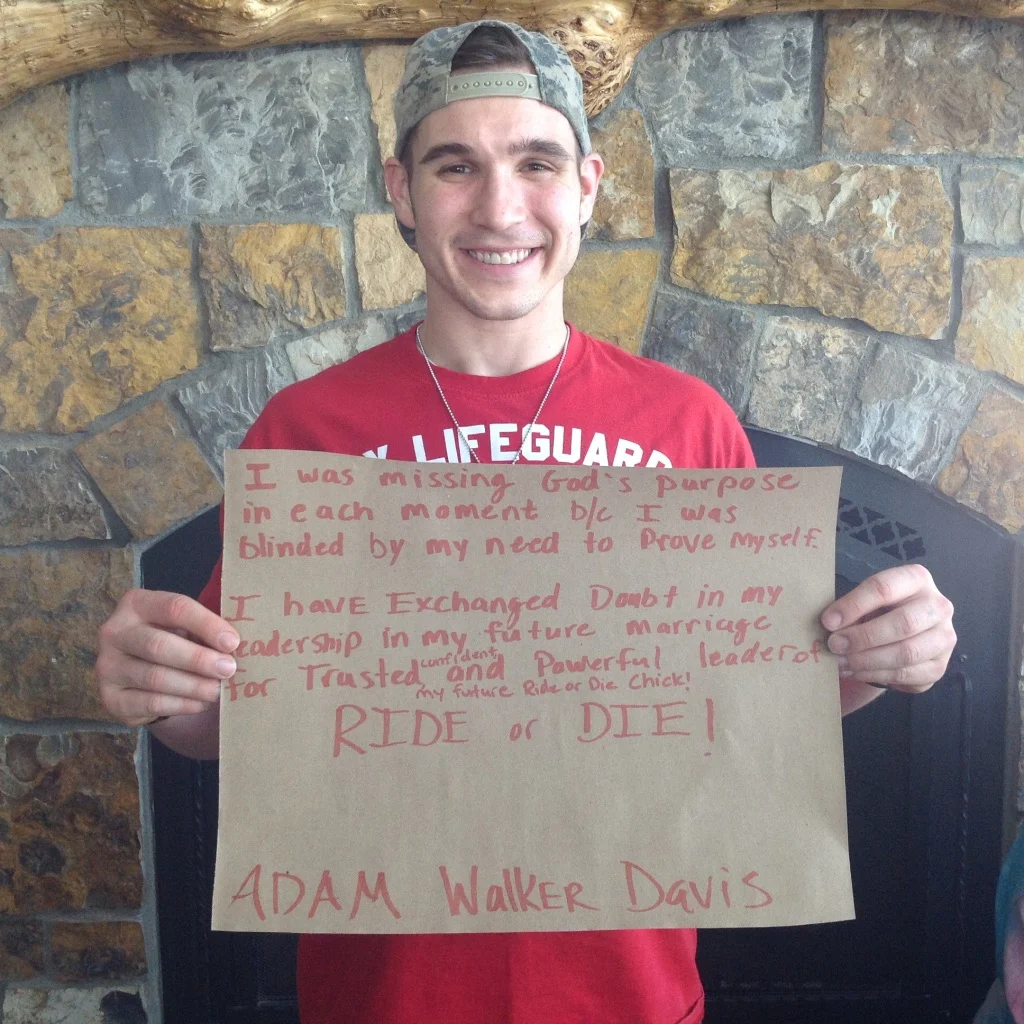 Y LIFEGUARD
I was missing God's purpose
in each moment b/c I was
blinded by my need to Prove Myself.
I havE Exchanged Doubt in my
leadership in my future marriage
for Trusted, confident, and Powerful leader of
my future Ride or Die Chick!
RIDE or DIE!
ADAM Walker Davis